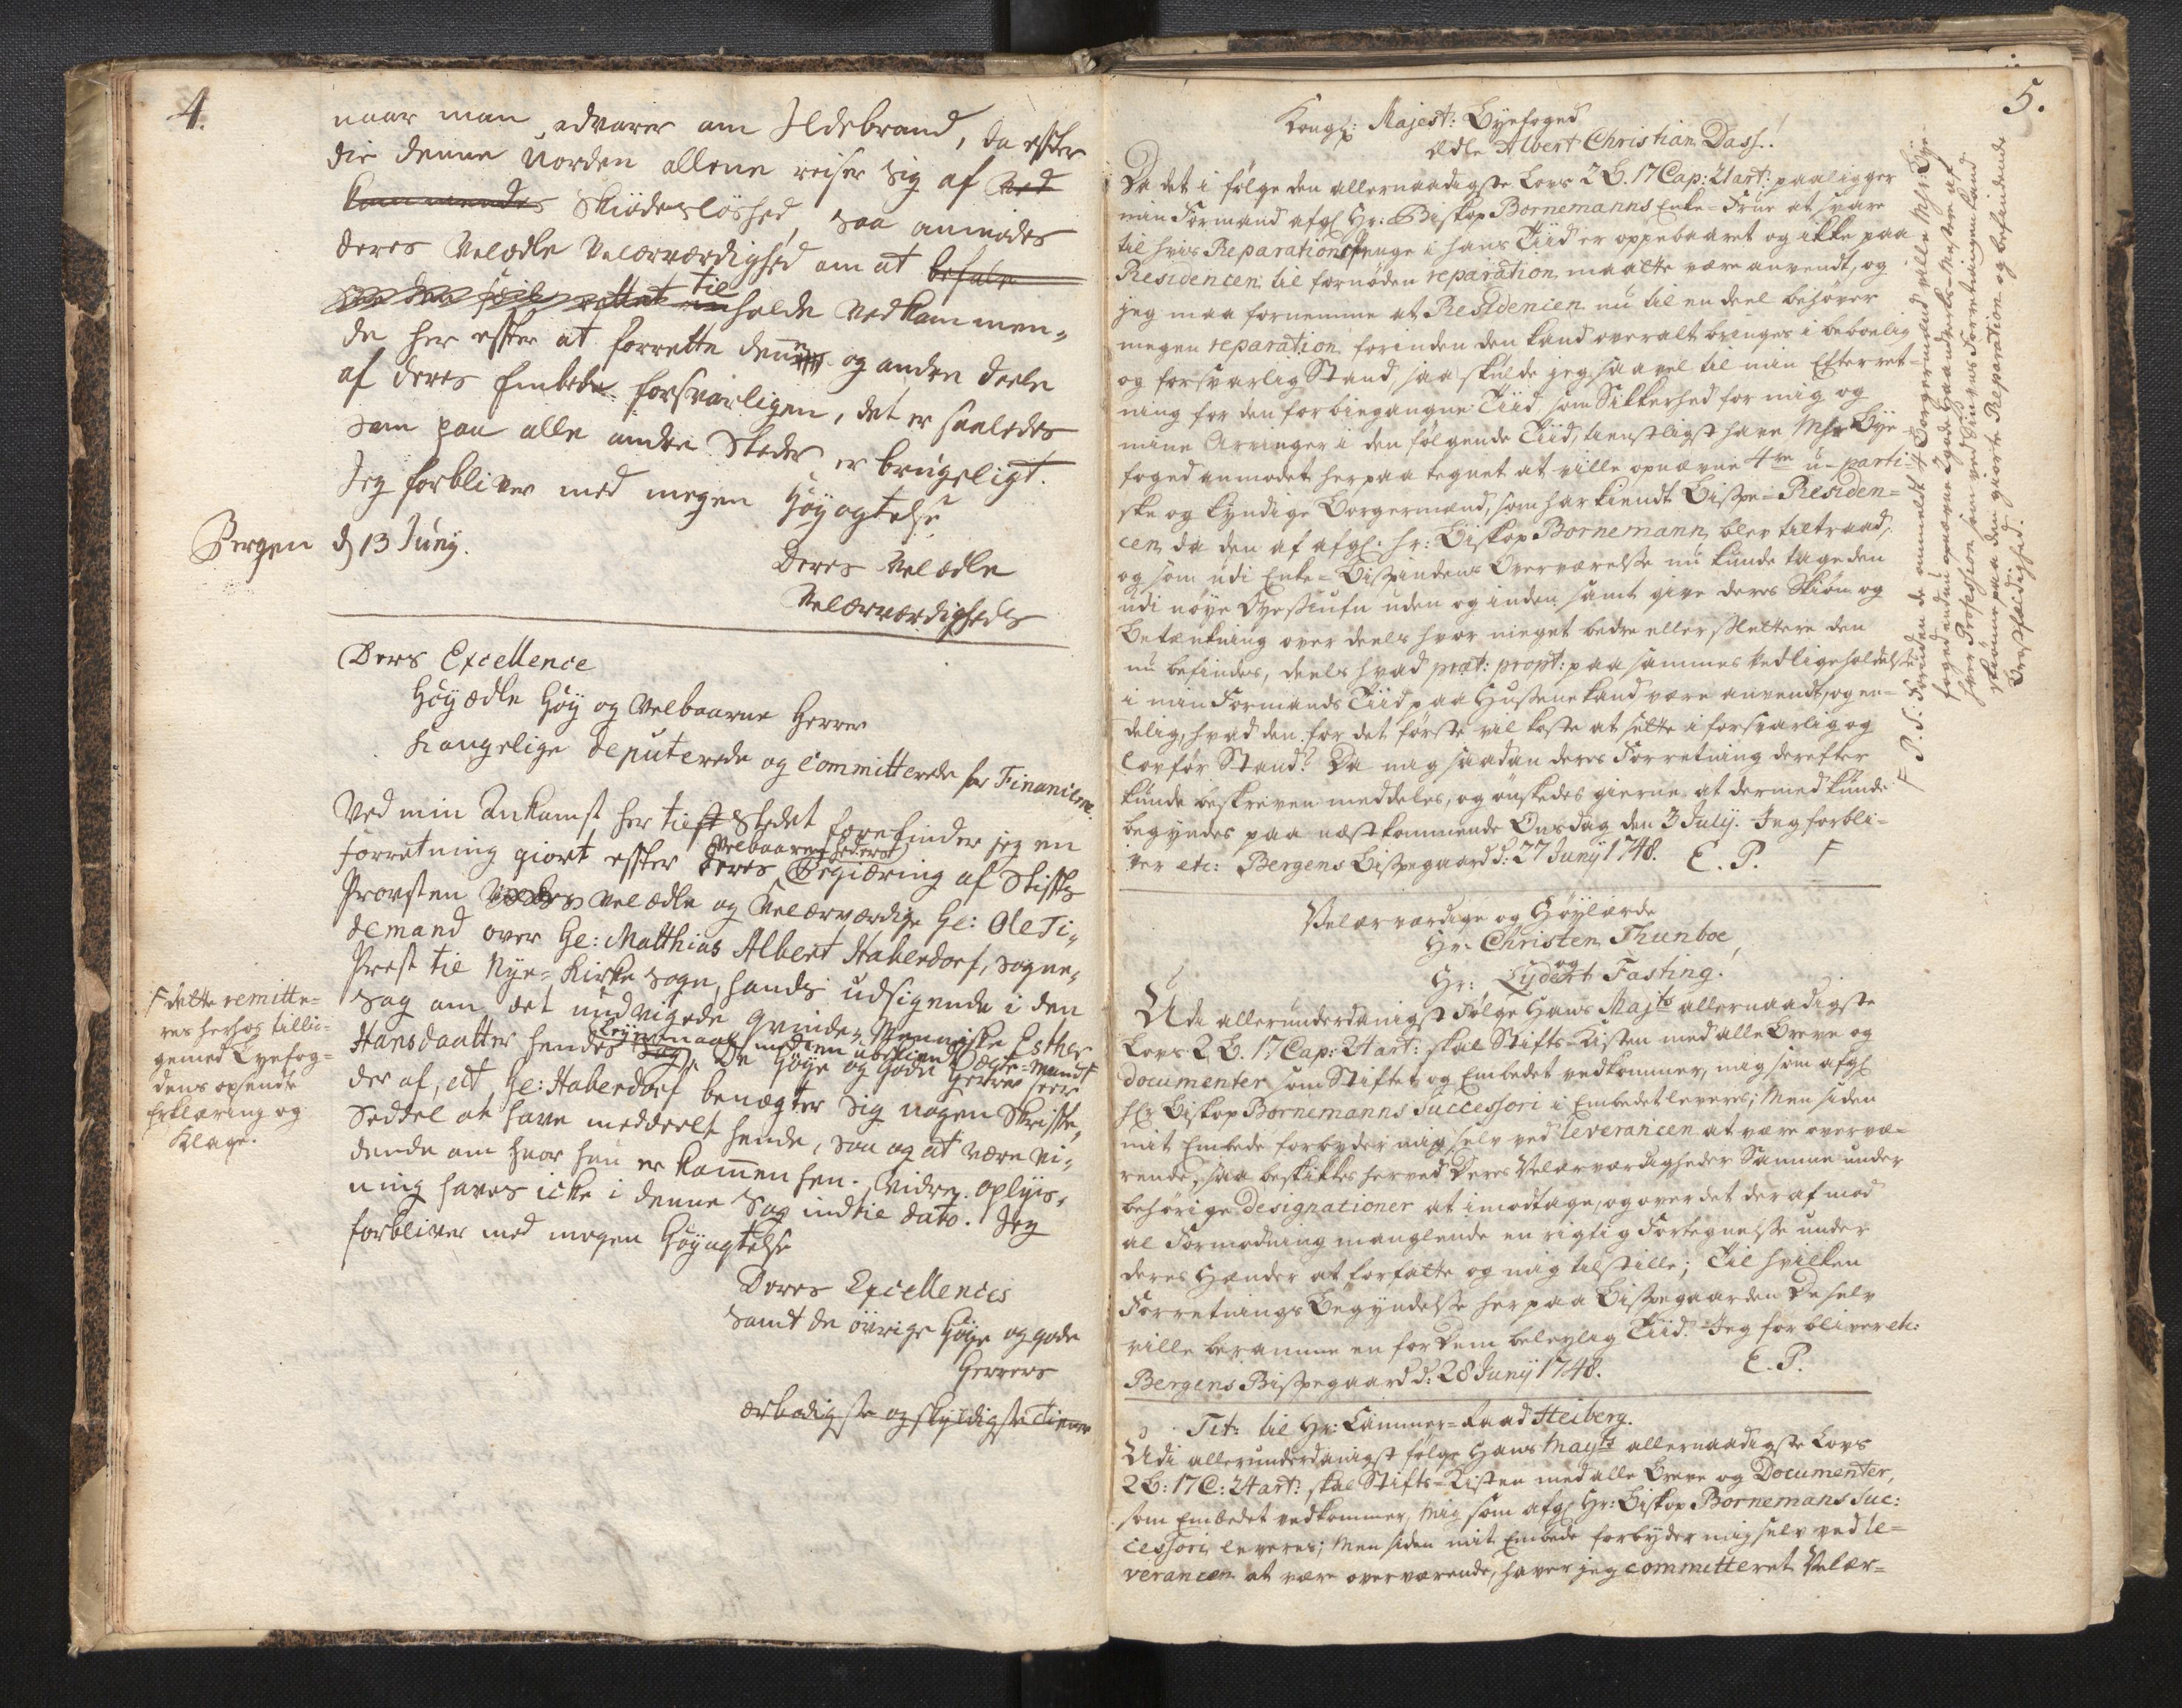 4.
naar man advarer om Ildebrand, da efter
die denne Uorden allene reiser sig af Ved
kommendes Skiødesløshed, saa anmodes
Deres Velædle Velærværdighed om at befale
til
holde Vedkommen„
de her efter at forrette denne og andre deele
af deres Embede forsvarligen, det er saaledes
som paa alle andre Steder er brugeligt.
Jeg forbliver med megen Høyagtelse
Bergen d 13 Juny.
Deres Velædle
Velærværdigheds
Ders Excellence
Høyædle Høy og Velbaarne Herrer
Kongelige Deputerede og Committerede for Financerne.
Ved min Ankomst her til Stedet forefinder jeg en
Velbaarenheders
Forretning giort efter Deres Begiæring af Stifts
Provsten Velædle og Velærværdige Hr: Ole Ti„
demand over Hr: Matthias Albert Haberdorf, Sogne„
Prest til Nye-Kirke Sogn, hands udsigende i den
Sag om det undvigede Qvinde-Menniske Esther
Leyermaal med en ubekiendt Ægte-Mand F
Hansdaatter hendes Sag. De Høye og Gode Herrer seer
der af, at Hr: Haberdorf benægter sig nogen Skrifte„
Seddel at have meddeelt hende, saa og at være vi„
dende om hvor hun er kommen hen. Vidre oplyis„
ning haves icke i denne Sag indtil dato. Jeg
forbliver med megen Høyagtelse
Deres Excellences
samt de øvrige Høye og gode
Herrers
ærbødigste og skyldigste Tiener
F dette remitte=
res herhos tilli=
gemed Byefog=
dens opsendte
Erklæring og
Klage.
5.
Kongl: Majest: Byefoged
Ædle Albert Christian Dass.
Da det i følge den allernaadigste Lovs 2 B. 17 Cap: 21 art: paaligger
min Formand afgl Hr: Biskop Bornemanns Enke=Frue at svare
til hvis Reparations Penge i hans Tiid er oppebaaret og ikke paa
Residencen til fornøden reparation maatte være anvendt, og
jeg maa fornemme at Residencen nu til en deel behøver
megen reparation forinden den kand overalt bringes i beboelig
og forsvarlig Stand, saa skulde jeg saavel til min Efterret=
ning for den forbiegangne Tiid som Sikkerhed for mig og
mine Arvinger i den følgende Tiid, tienstligst have Mhr Bye=
foged anmodet herpaa tegnet at ville opnævne 4re u-parti=
ske og kyndige Borgermænd, som har kiendt Bispe=Residen=
cen da den af afgl. Hr: Biskop Bornemann blev tiltraad,
og som udi Enke=Bispindens Overværelse nu kunde tage den
udi nøye Øyesiufn uden og inden samt give deres Skiøn og
Betænkning over deels hvor meget bedre eller slettere den
nu befindes, deels hvad præt: propt: paa sammes Vedligeholdelse
i min Formands Tiid paa Husene kand være anvendt, og en=
delig, hvad den for det første vil koste at sætte i forsvarlig og
lovfør Stand? Da mig saadan deres Forretning derefter
kunde beskreven meddeles, og ønskedes gierne at dermed kunde
begyndes paa næstkommende Onsdag den 3 July. Jeg forbli=
ver etc: Bergens Bispegaard d: 27 Juny 1748. E. P. F
F P. S: Foruden de anmeldte 4 Borgermænd ville Mhr: Bye
fogeden opnævne 2 gode Haandverks-Mestere af
hver Profession, som ved Siunets Forretningen kand
skiønne paa den giorte Reparation og befindende
Brøstfeldighed.
Velærværdige og Høylærde
Hr: Christen Thunboe,
og
Hr: Lydert Fasting.
Udi allerunderdanigst Følge Hans Majts allernaadigste
Lovs 2. B. 17 Cap: 24 art: skal Stifts-Kisten med alle Breve og
documenter som Stiftet og Embedet vedkommer, mig som afgl
Hr Biskop Bornemanns Successori i Embedet leveres; Men siden
mit Embede forbyder mig selv ved leverancen at være overvæ=
rende, saa beskikkes herved Deres Velærværdigheder Samme under
behørige designationer at imodtage, og over det der af mod
al Formodning manglende en rigtig Fortegnelse under
deres Hænder at forfatte og mig tilstille; Til hvilken
Forretnings Begyndelse her paa Bispegaarden De selv
ville beramme en for Dem beleylig Tiid. Jeg forbliver etc:
Bergens Bispegaard d: 28 Juny 1748. E. P.
Tit: til Hr: Cammer=Raad Heiberg.
Udi allerunderdanigst følge Hans Mayts allernaadigste Lovs
2 B: 17 C: 24 art: skal Stifts-Kisten med alle Breve og Documenter,
som Embedet vedkommer, Mig som afgl Hr: Biskop Bornemans Suc:
cessori leveres; Men siden mit Embede forbyder mig selv ved le=
verancen at være overværende, haver jeg committeret Velær=